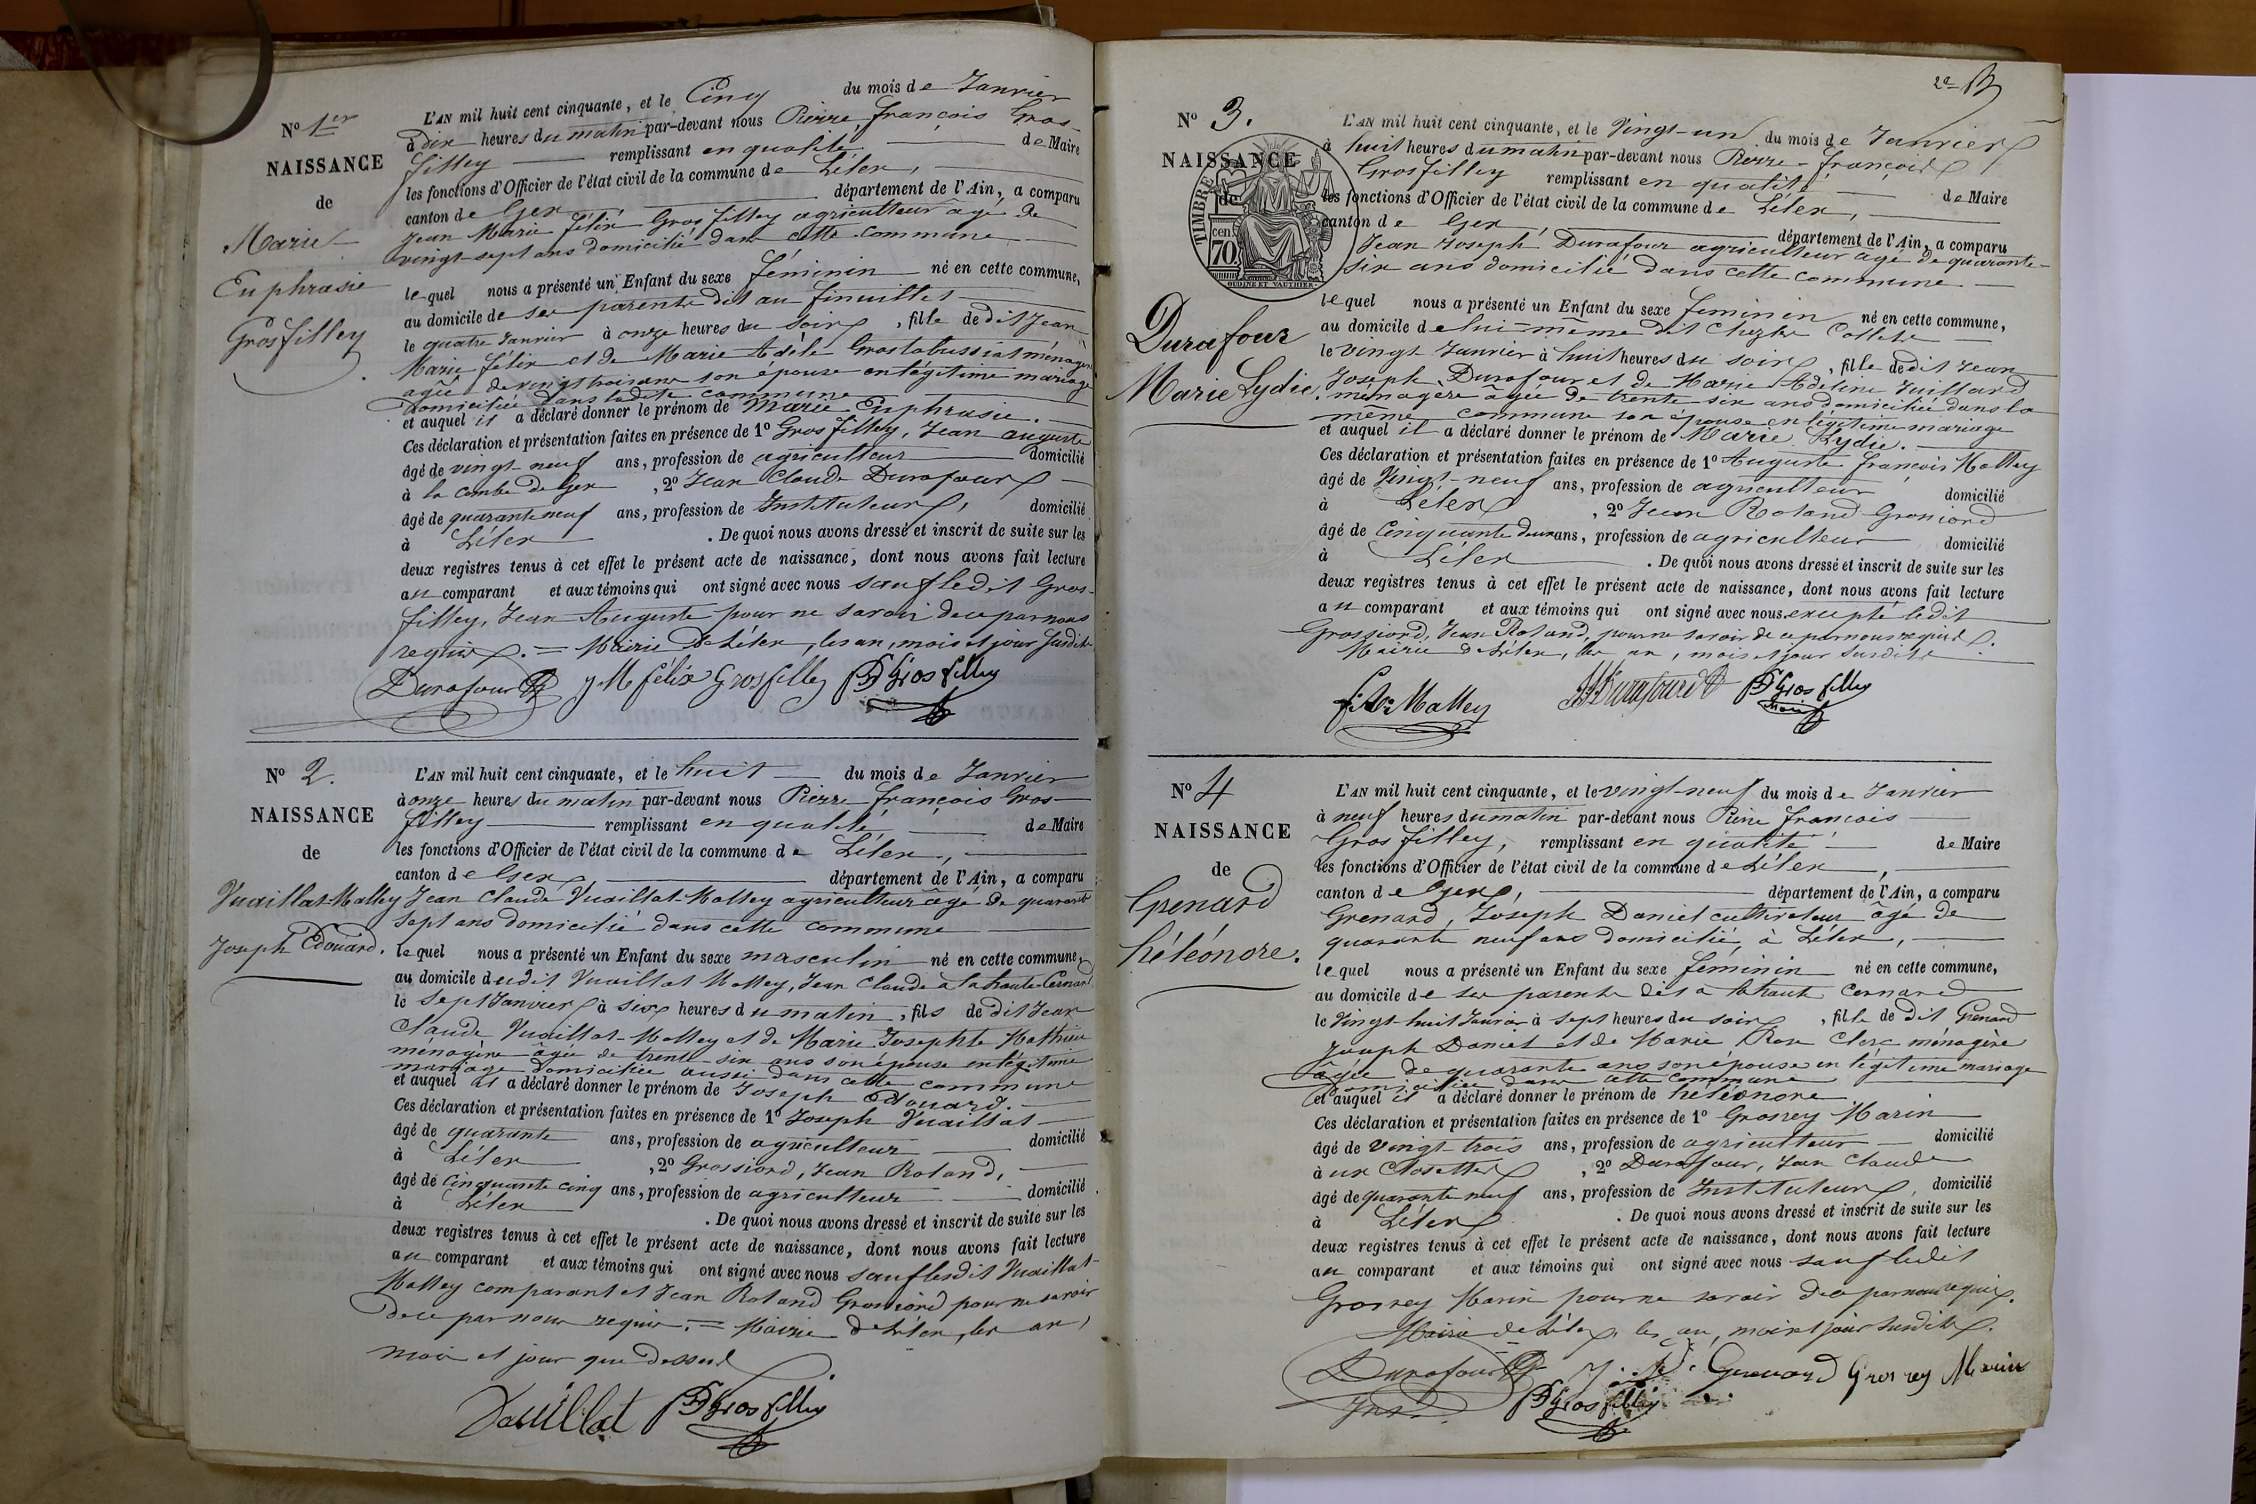 N° 1er
NAISSANCE
de
Marie
Euphrasie
Grosfilley
L'AN mil huit cent cinquante, et le Cinq du mois de Janvier
à dix heures du matin par-devant nous Pierre François Gros-
filley remplissant en qualité de Maire
les fonctions d'Officier de l'état civil de la commune de Lélex,
canton de Gex département de l'Ain, a comparu
Jean Marie félix Grosfilley agriculteur âgé de
vingt-sept ans domicilié dans cette commune
lequel nous a présenté un Enfant du sexe féminin né en cette commune,
au domicile de ses parents dit au
le quatre Janvier à onze heures du soir, fille de dit Jean
Marie félix et de Marie Adèle Grostabussiat ménagère
agée de vingt trois ans son épouse en légitime mariage
domiciliée dans ladite commune
et auquel il a déclaré donner le prénom de Marie Euphrasie.
Ces déclaration et présentation faites en présence de 1° Grosfilley, Jean auguste
âgé de vingt-neuf ans, profession de agriculteur domicilié
à la combe de Gex, 2° Jean Claude Durafour
âgé de quarante neuf ans, profession de Instituteur, domicilié
à Lélex. De quoi nous avons dressé et inscrit de suite sur les
deux registres tenus à cet effet le présent acte de naissance, dont nous avons fait lecture
au comparant et aux témoins qui ont signé avec nous sauf ledit Gros-
filley, Jean Auguste pour ne savoir de ce par nous
requis. = Mairie de Lélex, les an, mois et jour susdits
Durafour J M félix Grosfilley PF Grosfilley
N° 2.
NAISSANCE
de
Vuaillat-Malley
Joseph Edouard.
L'AN mil huit cent cinquante, et le huit du mois de Janvier
à onze heures du matin par-devant nous Pierre François Gros-
filley remplissant en qualité de Maire
les fonctions d'Officier de l'état civil de la commune de Lélex,
canton de Gex département de l'Ain, a comparu
Jean Claude Vuaillat-Malley agriculteur âgé de quarante
sept ans domicilié dans cette commune
lequel nous a présenté un Enfant du sexe masculin né en cette commune,
au domicile dudit Vuaillat Malley, Jean Claude à la haute Cernard
le sept Janvier à six heures du matin, fils de dit Jean
Claude Vuaillat-Malley et de Marie Josephte Mathieu
ménagère âgée de trente-six ans son épouse en légitime
mariage domiciliée aussi dans cette commune
et auquel il a déclaré donner le prénom de Joseph Edouard.
Ces déclaration et présentation faites en présence de 1° Joseph Vuaillat
âgé de quarante ans, profession de agriculteur domicilié
à Lélex, 2° Grossiord, Jean Roland,
âgé de cinquante cinq ans, profession de agriculteur domicilié
à Lélex. De quoi nous avons dressé et inscrit de suite sur les
deux registres tenus à cet effet le présent acte de naissance, dont nous avons fait lecture
au comparant et aux témoins qui ont signé avec nous sauf lesdit Vuaillat-
Malley comparant et Jean Roland Grossiord pour ne savoir
de ce par nous requis. = Mairie de Lélex, les an,
mois et jour que dessus
Vauillat PF Grosfilley
N° 3.
NAISSANCE
de
TIMBRE
cen 70.
OUDINÉ ET VAUTHIER
Durafour
Marie Lydie.
L'AN mil huit cent cinquante, et le Vingt-un du mois de Janvier
à huit heures du matin par-devant nous Pierre-François
Grosfilley remplissant en qualité de Maire
les fonctions d'Officier de l'état civil de la commune de Lélex,
canton de Gex département de l'Ain, a comparu
Jean Joseph Durafour agriculteur âgé de quarante-
six ans domicilié dans cette commune
lequel nous a présenté un Enfant du sexe féminin né en cette commune,
au domicile de lui-même dit chez les Collet
le vingt Janvier à huit heures du soir, fille de dit Jean
Joseph Durafour et de Marie Adeline Juilland
ménagère âgée de trente-six ans domiciliée dans la
même commune son épouse en légitime mariage
et auquel il a déclaré donner le prénom de Marie Lydie.
Ces déclaration et présentation faites en présence de 1° Auguste françois Malley
âgé de Vingt-neuf ans, profession de agriculteur domicilié
à Lélex, 2° Jean Roland Grossiord
âgé de Cinquante deux ans, profession de agriculteur domicilié
à Lélex. De quoi nous avons dressé et inscrit de suite sur les
deux registres tenus à cet effet le présent acte de naissance, dont nous avons fait lecture
au comparant et aux témoins qui ont signé avec nous excepté ledit
Grossiord, Jean Roland, pour ne savoir de ce par nous requis.
Mairie de Lélex, les an, mois et jour susdits
Malley Durafour PF Grosfilley
Maire
N° 4
NAISSANCE
de
Grenard
héléonore.
L'AN mil huit cent cinquante, et le vingt-neuf du mois de Janvier
à neuf heures du matin par-devant nous Pierre François
Grosfilley, remplissant en qualité de Maire
les fonctions d'Officier de l'état civil de la commune de Lélex,
canton de Gex, département de l'Ain, a comparu
Grenard, Joseph Daniel cultivateur âgé de
quarante neuf ans domicilié à Lélex,
lequel nous a présenté un Enfant du sexe féminin né en cette commune,
au domicile de ses parents dit à la haute cernard
le Vingt-huit Janvier à sept heures du soir, fille de dit Grenard
Joseph Daniel et de Marie Rose Clerc ménagère
âgée de quarante ans son épouse en légitime mariage
domiciliée dans cette commune
et auquel il a déclaré donner le prénom de héléonore
Ces déclaration et présentation faites en présence de 1° Grosrey Marin
âgé de vingt-trois ans, profession de agriculteur domicilié
à, 2° Durafour, Jean Claude
âgé de quarante neuf ans, profession de Instituteur, domicilié
à Lélex. De quoi nous avons dressé et inscrit de suite sur les
deux registres tenus à cet effet le présent acte de naissance, dont nous avons fait lecture
au comparant et aux témoins qui ont signé avec nous sauf ledit
Grosrey Marin pour ne savoir de ce par nous requis.
Mairie de Lélex, les an, mois et jour susdits.
Durafour J. D. Grenard Grosrey Marin
Inst. PF Grosfilley